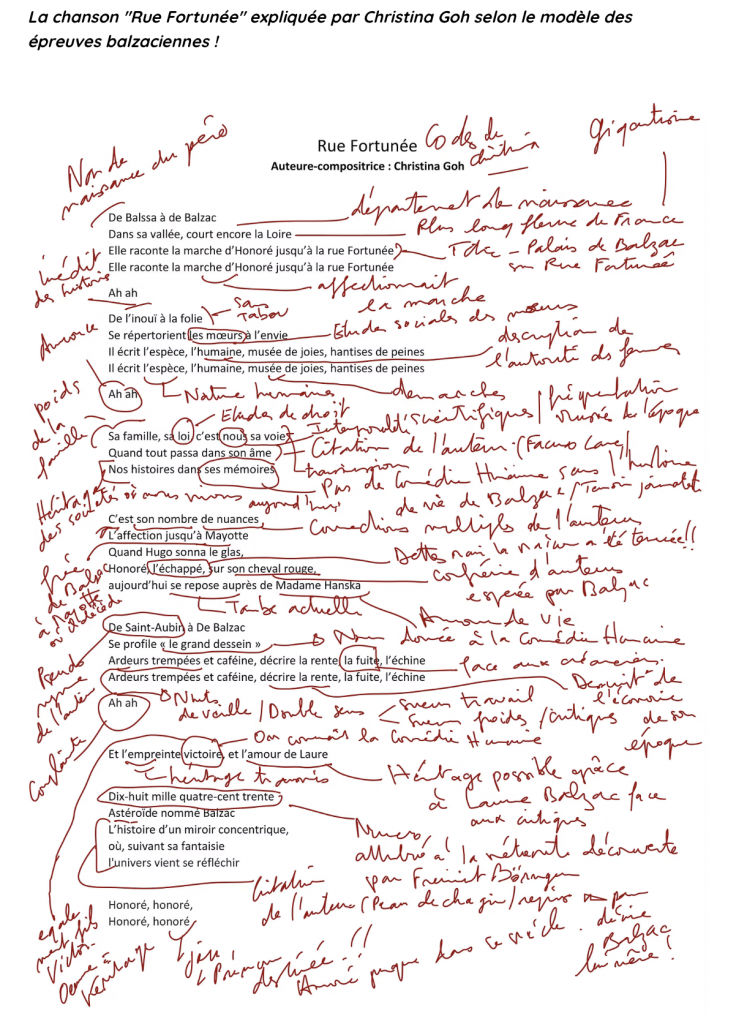 La chanson "Rue Fortunée" expliquée par Christina Goh selon le modèle des
épreuves balzaciennes !
Rue Fortunée
Codes de
Gigantisme
Auteure-compositrice : Christina Goh
Nom de
naissance du père
département de naissance
De Balssa à de Balzac
Plus long fleuve de France
Dans sa vallée, court encore la Loire
Elle raconte la marche d'Honoré jusqu'à la rue Fortunée
Palais de Balzac
Elle raconte la marche d'Honoré jusqu'à la rue Fortunée
Rue Fortunée
inédit
affectionnait
la marche
Ah ah
Sans
Tabou
De l'inouï à la folie
Etudes sociales des mœurs
Se répertorient les mœurs à l'envie
description de
Il écrit l'espèce, l'humaine, musée de joies, hantises de peines
l'autorité des femmes
Il écrit l'espèce, l'humaine, musée de joies, hantises de peines
Ah ah
Nature humaine
démarches
scientifiques / musées de l'époque
poids
de la
famille
Etudes de droit
Sa famille, sa loi c'est nous sa voie
Quand tout passa dans son âme
Citation de l'auteur (Facino Cane)
Nos histoires dans ses mémoires
transmission
Pas de Comédie Humaine sans l'histoire
de vie de Balzac
Héritage
des sociétés où nous vivons aujourd'hui
C'est son nombre de nuances
Connections multiples de l'auteur
L'affection jusqu'à Mayotte
Quand Hugo sonna le glas,
Dettes mais la maison a été terminée!!
Honoré, l'échappé, sur son cheval rouge,
confrérie d'auteurs
espérée par Balzac
aujourd'hui se repose auprès de Madame Hanska
frère
de Balzac
à Mayotte
où il décède
Tombe actuelle
Amour de vie
De Saint-Aubin à De Balzac
Nom donné à la Comédie Humaine
Se profile « le grand dessein »
Ardeurs trempées et caféine, décrire la rente, la fuite, l'échine
face aux créanciers
Ardeurs trempées et caféine, décrire la rente, la fuite, l'échine
Pseudo
nyme
de l'auteur
Ah ah
Nuits
de veille / Double sens
sueur travail
sueur froides / critiques
l'économie
de son
époque
Complainte
On connaît la Comédie Humaine
Et l'empreinte victoire, et l'amour de Laure
héritage transmis
Héritage possible grâce
à Laure Balzac face
aux critiques
Dix-huit mille quatre-cent trente
Astéroïde nommé Balzac
L'histoire d'un miroir concentrique,
où, suivant sa fantaisie
l'univers vient se réfléchir
Numéro
attribué à la météorite découverte
par Freimut Börngen
Citation
de l'auteur (Peau de chagrin)
Honoré, honoré,
Honoré, honoré
Prénom
destinée !!
Honoré jusque dans ce siècle
Balzac
lui-même !